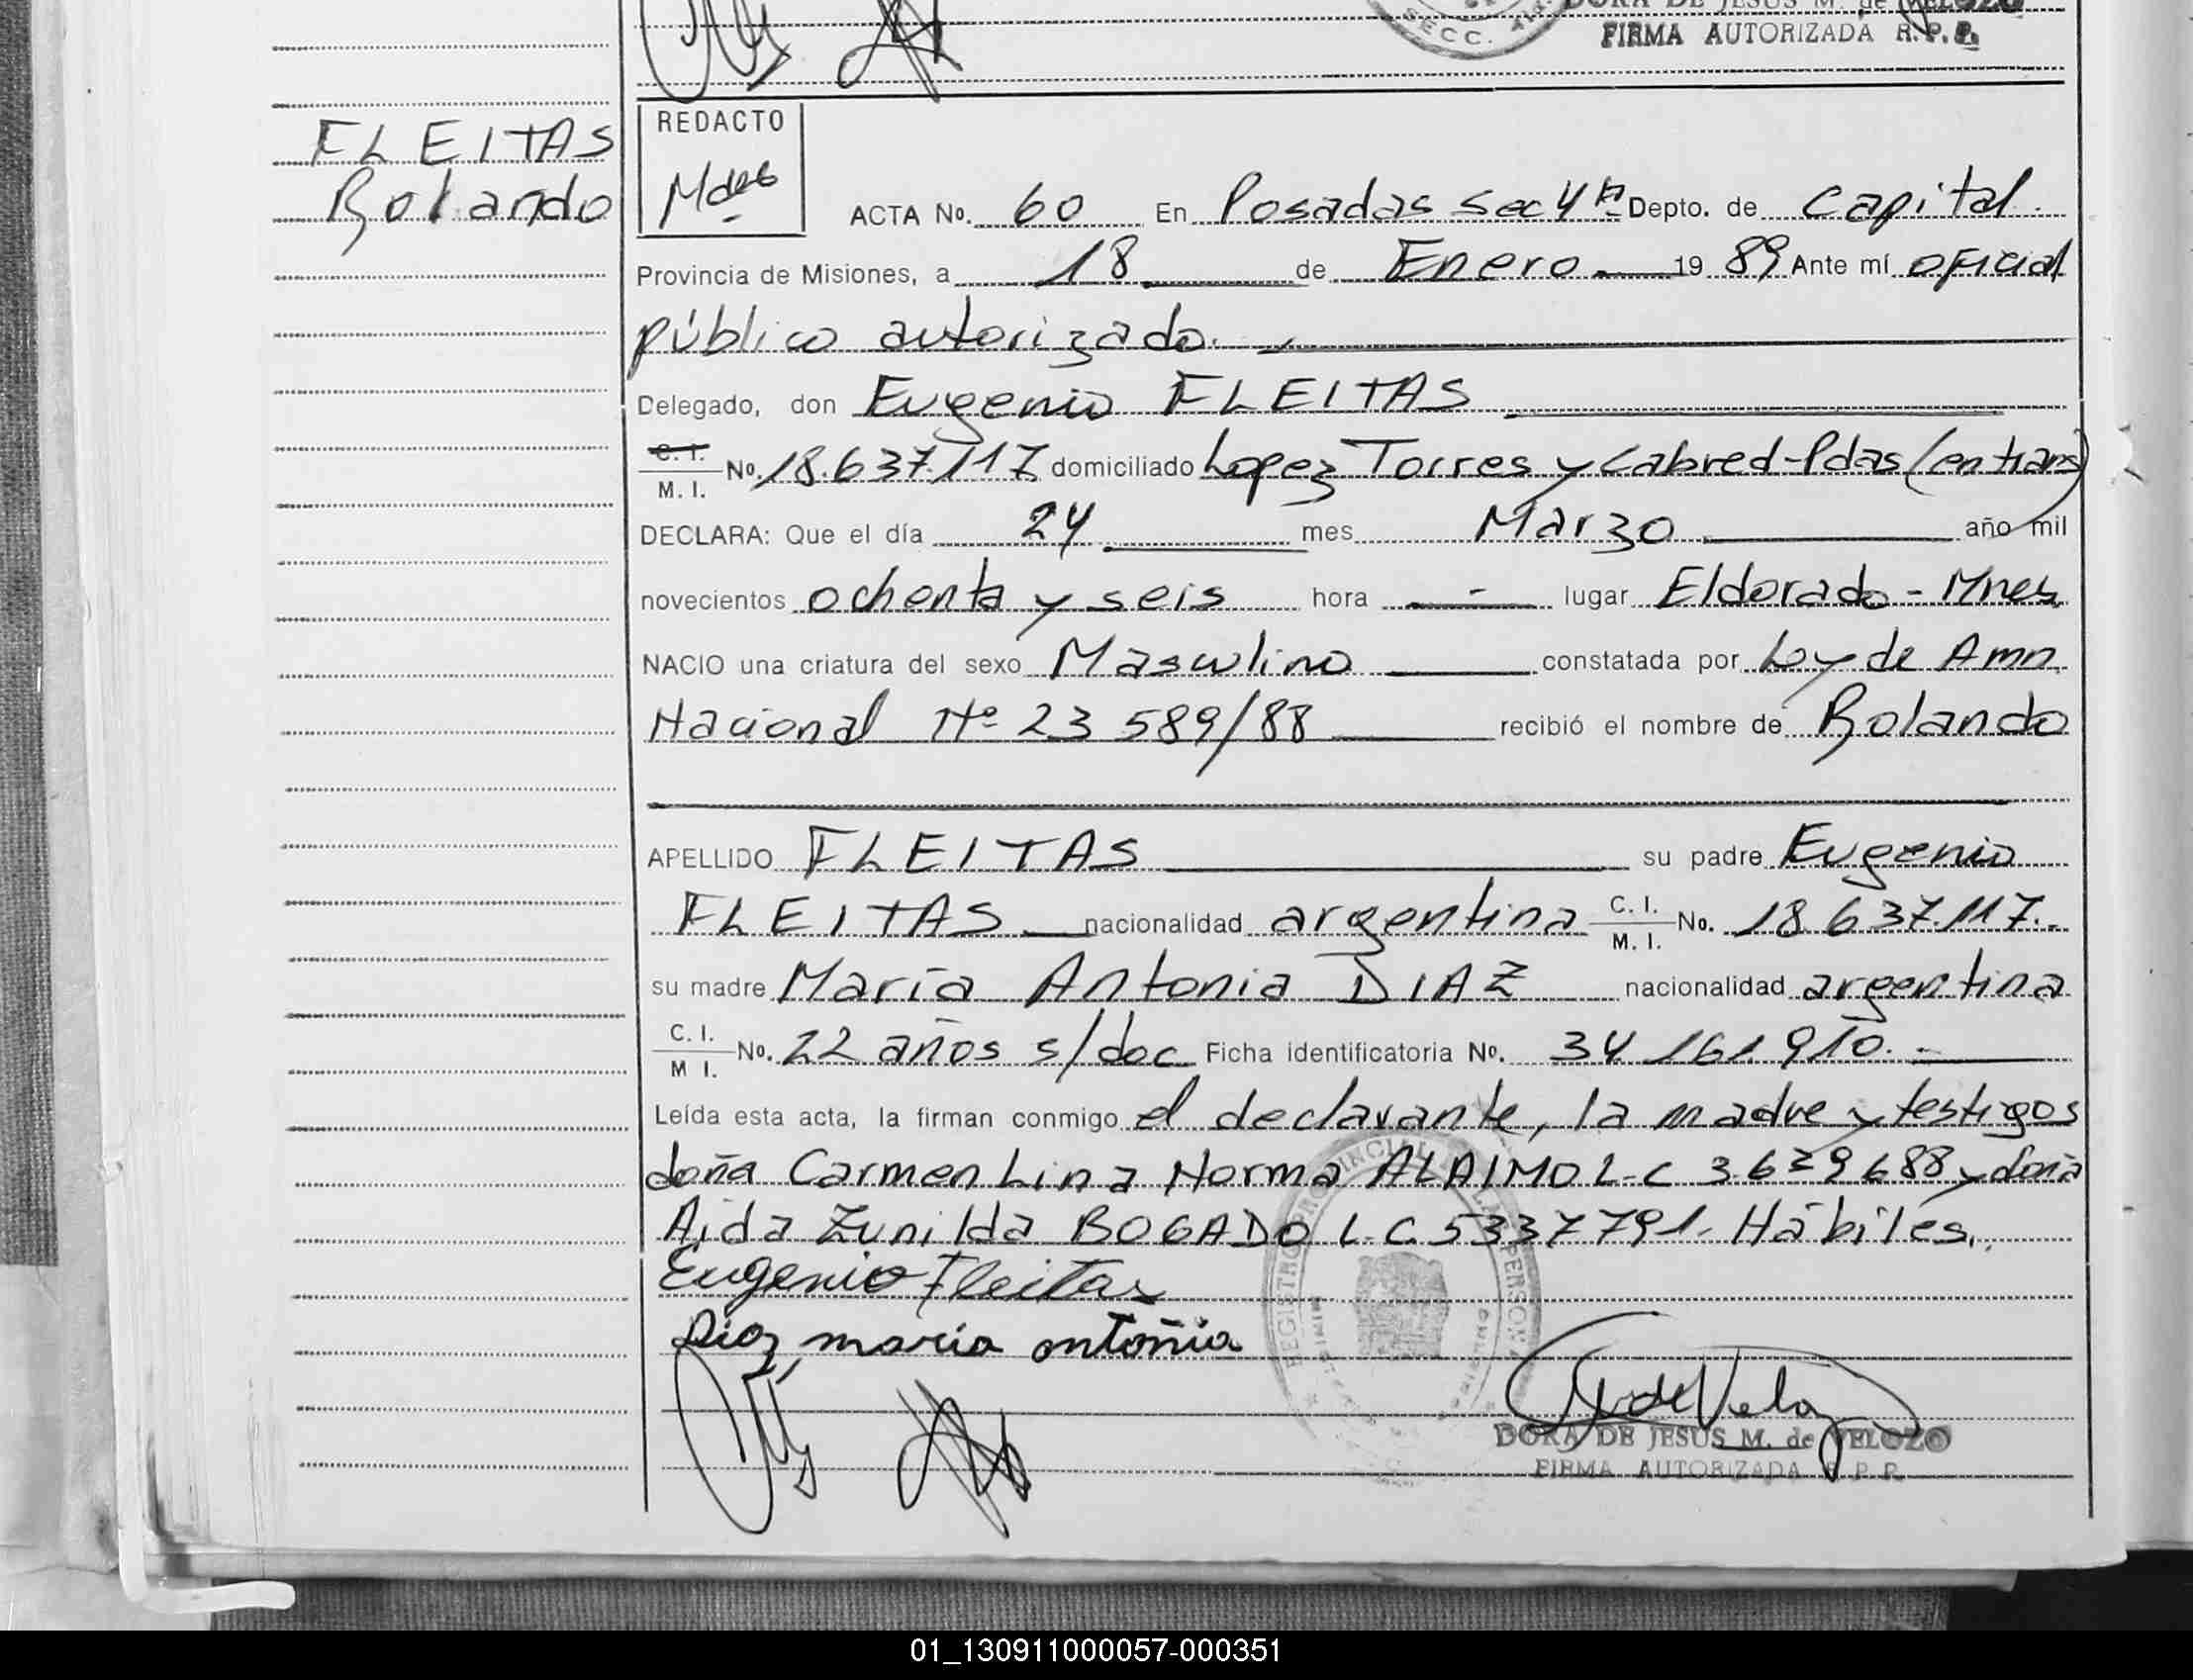 SECC. 4ta.
DORA DE JESUS M. de VELOZO
FIRMA AUTORIZADA R. P. P.
FLEITAS
Rolando
REDACTO
ACTA No. 60 En Posadas Sec 4ta Depto. de Capital.
Provincia de Misiones, a 18 de Enero 19 89 Ante mí oficial
público autorizado.
Delegado, don Eugenio FLEITAS
C. I.
M. I. No. 18.637.117 domiciliado Lopez Torres y Cabred-Pdas (en trans)
DECLARA: Que el día 24 mes Marzo año mil
novecientos ochenta y seis hora - lugar Eldorado - Mnes
NACIO una criatura del sexo Masculino constatada por Ly de Amn.
Nacional Nº 23 589/88 recibió el nombre de Rolando
APELLIDO FLEITAS su padre Eugenio
FLEITAS nacionalidad argentina C. I. M. I. No. 18.637.117.-
su madre María Antonia DIAZ nacionalidad argentina
C. I. M I. No. 22 años s/doc Ficha identificatoria No. 34 161 910.-
Leída esta acta, la firman conmigo el declarante, la madre y testigos
doña Carmen Lina Norma ALAIMO L-C 3629688 y doña
Aida Zunilda BOGADO L.C. 5337791. Hábiles.
Eugenio Fleitas
Diaz maria antoñia
REGISTRO PROVINCIAL DE LAS PERSONAS
DORA DE JESUS M. de VELOZO
FIRMA AUTORIZADA R. P. P.
01_130911000057-000351